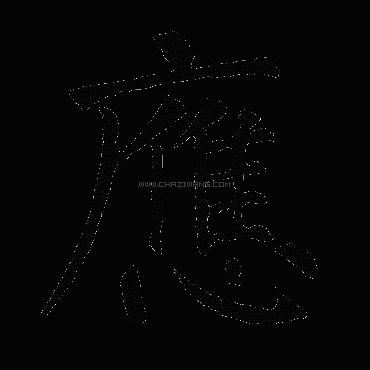 應
WWW.CHAZIWANG.COM